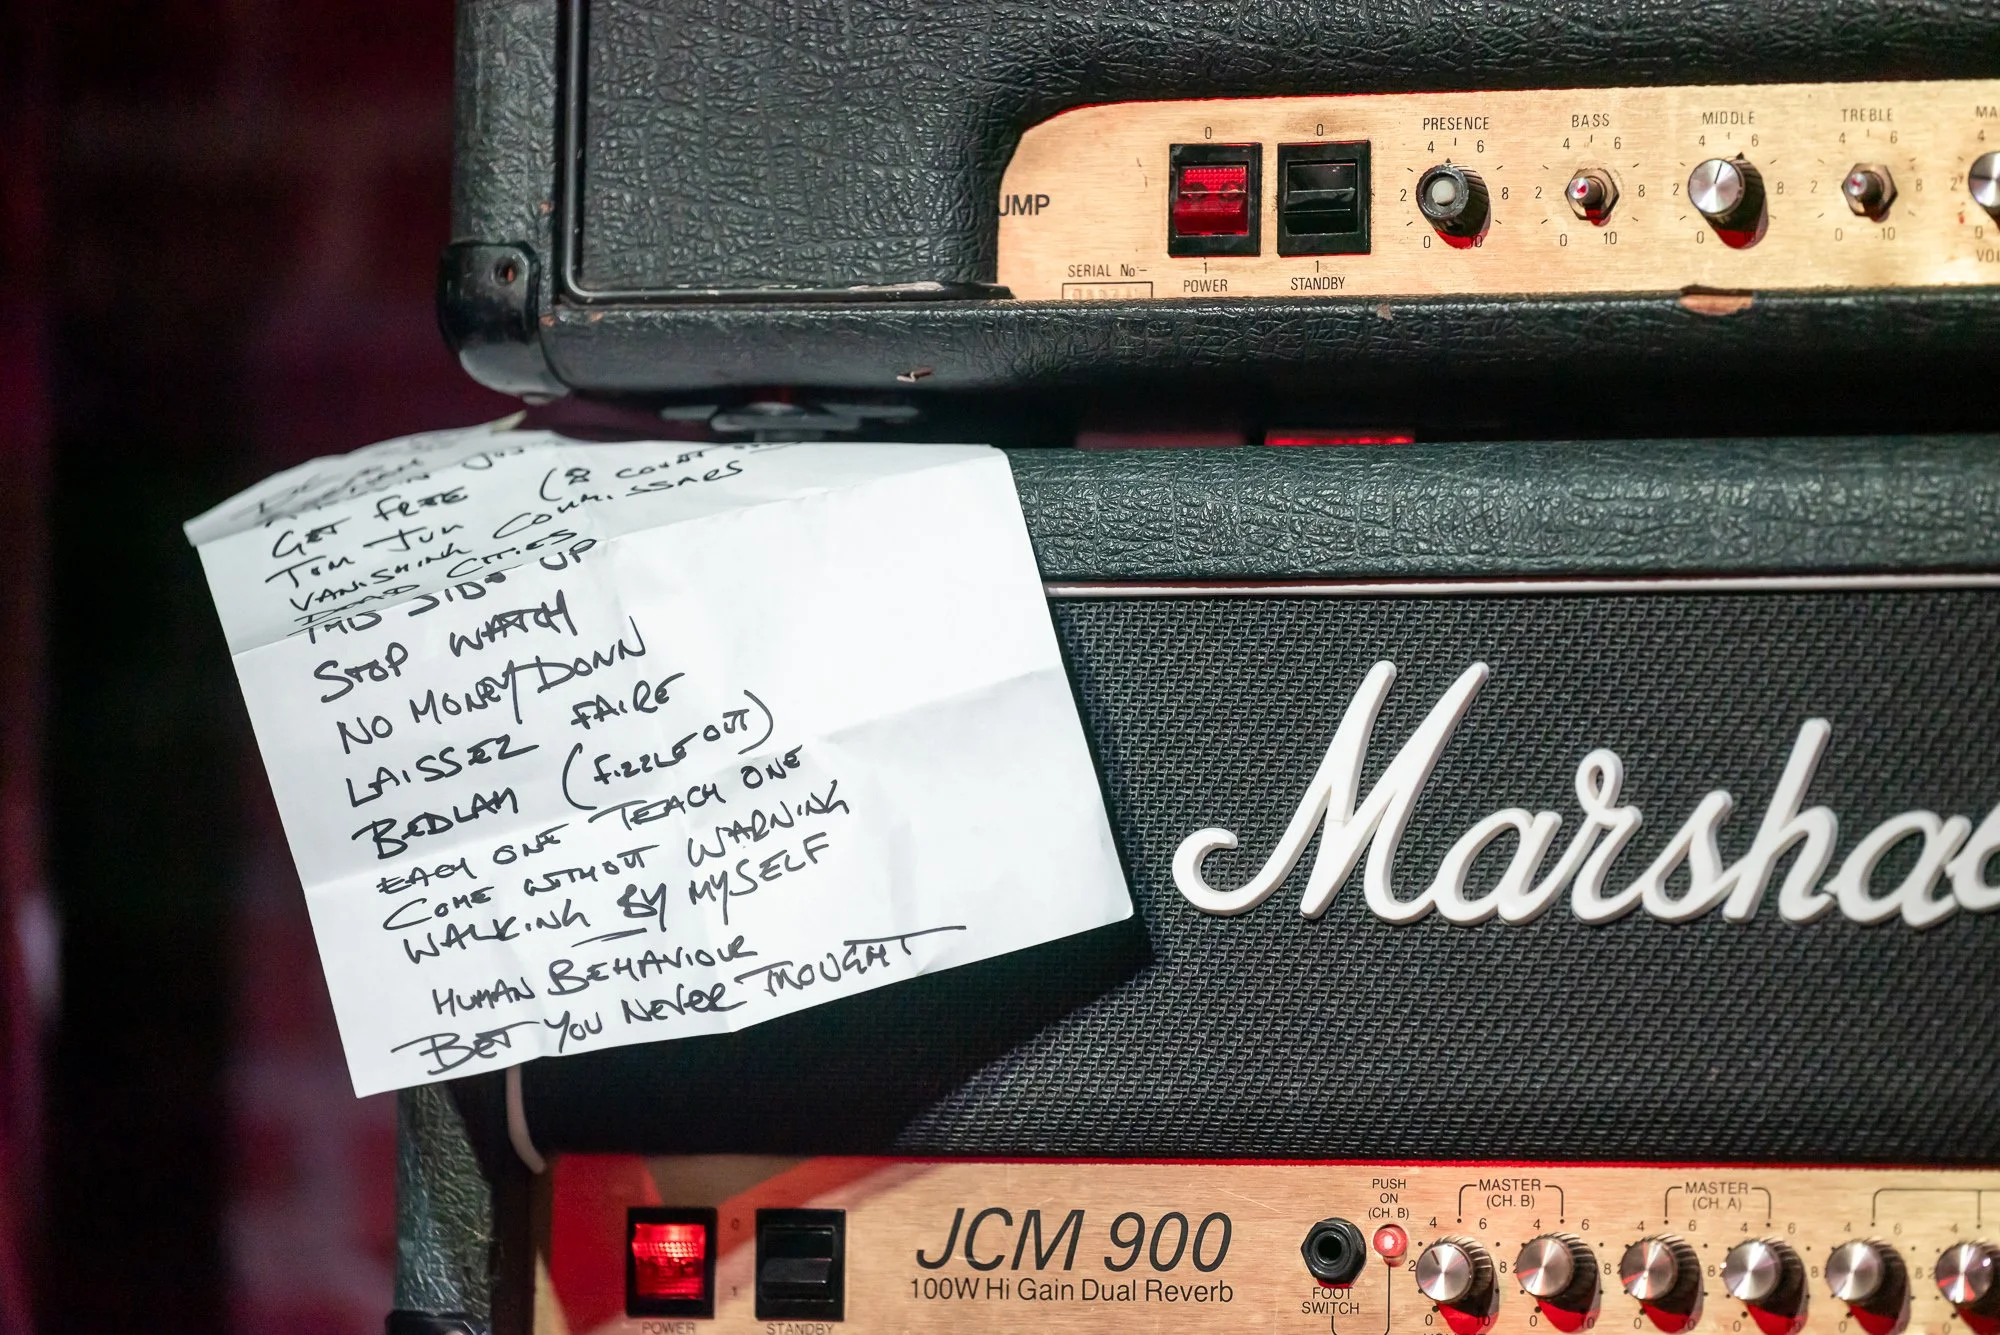 UMP
SERIAL No
0
1
POWER
0
1
STANDBY
PRESENCE
0 2 4 6 8 10
BASS
0 2 4 6 8 10
MIDDLE
0 2 4 6 8 10
TREBLE
0 2 4 6 8 10
MA
4
2
0
VOL
GET FREE (8 COUNT
TOM JUN
VANISHING COMMISSARS
CITIES
THIS SIDE UP
STOP WATCH
NO MONEY DOWN
LAISSEZ FAIRE
BEDLAM (FIZZLE OUT)
EACH ONE TEACH ONE
COME WITHOUT WARNING
WALKING BY MYSELF
HUMAN BEHAVIOUR
BET YOU NEVER THOUGHT
Marsha
0
1
POWER
STANDBY
JCM 900
100W Hi Gain Dual Reverb
FOOT
SWITCH
PUSH
ON
(CH. B)
MASTER
(CH. B)
MASTER
(CH. A)